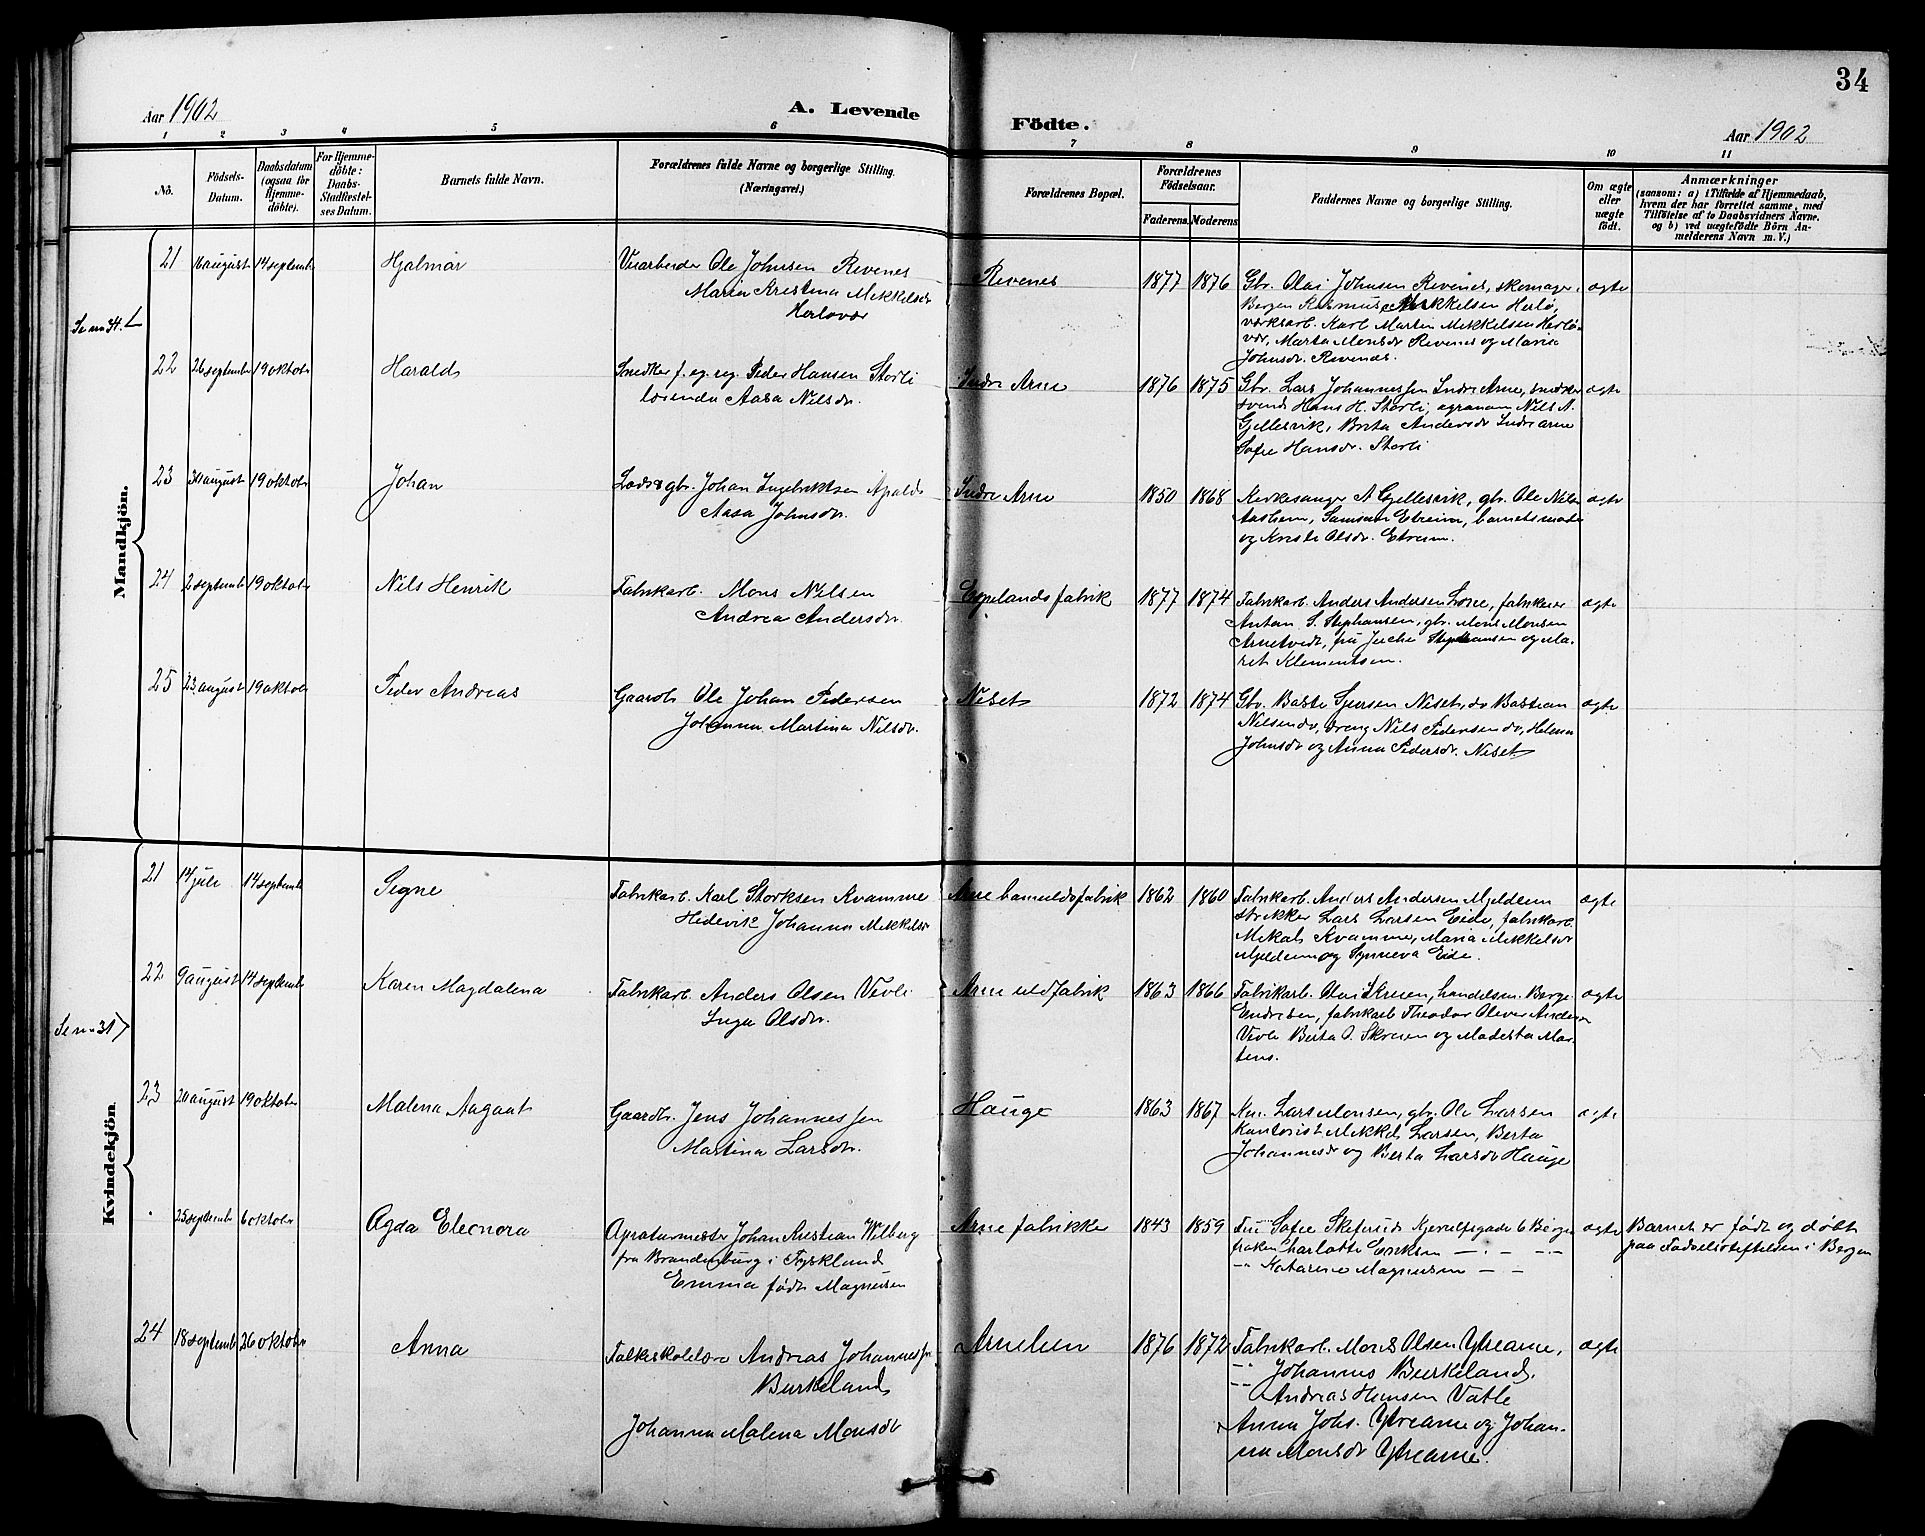 34
Aar 1902
A. Levende
Födte.
Aar 1902
1 2 3 4 5 6 7 8 9 10 11
No.
Födsels-
Datum.
Daabsdatum
(ogsaa for
Hjemme-
döbte).
For Hjemme-
döbte:
Daabs-
Stadfæstel-
ses Datum.
Barnets fulde Navn.
Forældrenes fulde Navne og borgerlige Stilling.
(Næringsvei.)
Forældrenes Bopæl.
Forældrenes
Födselsaar.
Faderens. Moderens.
Faddernes Navne og borgerlige Stilling.
Om ægte
eller
uægte
födt.
Anmærkninger
(saasom: a) i Tilfælde af Hjemmedaab,
hvem der har forrettet samme, med
Tilföielse af to Daabsvidners Navne.
og b) ved uægtefödte Börn An-
melderens Navn m. V.)
Mandkjön.
Se no 34.
21 16 august 14 septemb Hjalmar
Ole Johnsen Revenes
Maria Kristina Mikkelsdr
Revenes 1877 1876
Gbr. Olai Johnsen Revenes, skomager,
Bergen Rasmus Mikkelsen Herlø,
Karl Martin Mikkelsen Herlø-
vær, Marta Monsdr Revenes og Maria
Johnsdr. Revenes.
ægte
22 26 septembr 19 oktobr Harald
Snedker f. eg. reg. Peder Hansen Storli
Aasa Nilsdr.
Indre Arne 1876 1875
Gbr. Lars Johannessen Indre Arne, snedker
svend Hans H. Storli, agronom Nils A.
Gjellesvik, Brita Andersdr Indre Arne
Sofie Hansdr. Storli
ægte
23 30 august 19 oktobr Johan
Lods & gbr. Johan Ingebriktsen Apald
Aasa Johnsdr.
Indre Arne 1850 1868
Kirkesanger A Gjellesvik, gbr. Ole Nils
Aasheim, Samson Etreim, barnets moder
og Kristi Olsdr. Etreim.
ægte
24 2 septembr 19 oktobr Nils Henrik
Fabrikarb. Mons Nilsen
Andrea Andersdr.
Espelands fabrik 1877 1874
Fabrikarb. Anders Andersen Lone, fabrikeier
Anton S. Stephansen, gbr. Mons Monsen
Arnetvedt, fru Stephansen og Ma-
ret Klementsen.
ægte
25 23 august 19 oktobr Peder Andreas
Gaardb. Ole Johan Pedersen
Johanna Martina Nilsdr.
Neset 1872 1874
Gbr. Baste Sjursen Neset, do Bastian
Nilsen do, dreng Nils Pedersen do, Helena
Johnsdr og Anna Pedersdr. Neset
ægte
Kvindekjön
Se no 31
21 14 juli 14 septembr Signe
Fabrikarb. Karl Storksen Kvamme
Hedevik Johanna Mikkelsdr
Arne bomuldsfabrik 1862 1860
Fabrikarb. Anders Andersen Mjeldeim
strikker Lars Larsen Eide, fabrikarb.
Mikal Kvamme, Maria Mikkelsdr
Mjeldeim og Synneva Eide.
ægte
22 9 august 14 septembr Karen Magdalena
Fabrikarb. Anders Olsen Vevle
Inga Olsdr.
Arne uldfabrik 1863 1866
Fabrikarb. Olai Skreien, handelsm. Berge
Endresen, fabrikarb Theodor Oliver Anderse
Vevle Berta O. Skreien og Modesta Mar-
tens.
ægte
23 20 august 19 oktobr Malena Aagaat
Gaardb. Jens Johannessen
Martina Larsdr.
Hauge 1863 1867
Kar. Lars Monsen, gbr. Ole Larsen
Kontorist Mikkel Larsen, Berta
Johannesdr og Berta Larsdr Hauge
ægte
25 septembr 6 oktobr Agda Eleonora
Apraturmester Johan Kristian Wilberg
fra Brandenburg i Tyskland
Emma født Magnusen
Arne fabrikker 1843 1859
Fru Sofie Skefsrud Kjerulfsgade 6 Berge
frøken Charlotte Eriksen
Katarine Magnusen
ægte
Barnet er født og døbt
paa Fødselsstiftelsen i Bergen
24 18 septemb 26 oktobr Anna
Folkeskolelære Andreas Johannessen
Burkeland
Johanna Malena Monsdr
Arneleen 1876 1872
Fabrikarb. Mons Olsen Ytrearne,
Johannes Burkeland,
Andreas Hansen Vatle
Anna Johs. Ytrearne og Johan-
na Monsdr Ytrearne.
ægte